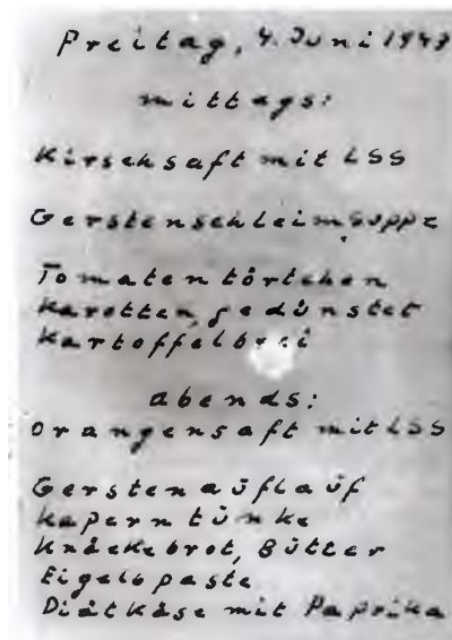 Freitag, 4. Juni 1943
mittags:
Kirschsaft mit LSS
Gerstenschleimsuppe
Tomatentörtchen
Karotten, gedünstet
Kartoffelbrei
abends:
Orangensaft mit LSS
Gerstenaŭflaŭf
Kaperntŭnke
Knäckebrot, Bŭtter
Eigelbpaste
Diätkäse mit Paprika